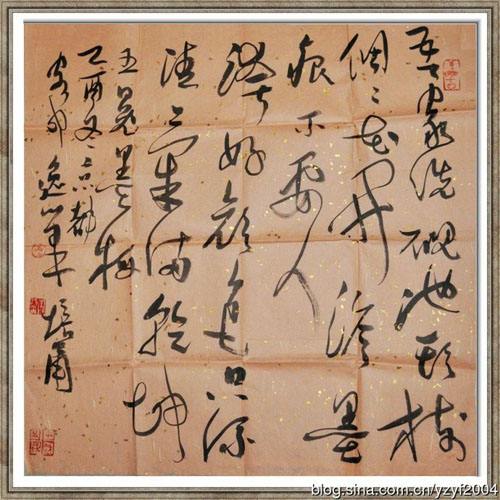 吾家洗硯池頭樹
個々花開澹墨
痕不要人
誇好顏色只流
清氣滿乾坤
王冕墨梅
乙酉冬
blog.sina.com.cn/yzyf2004